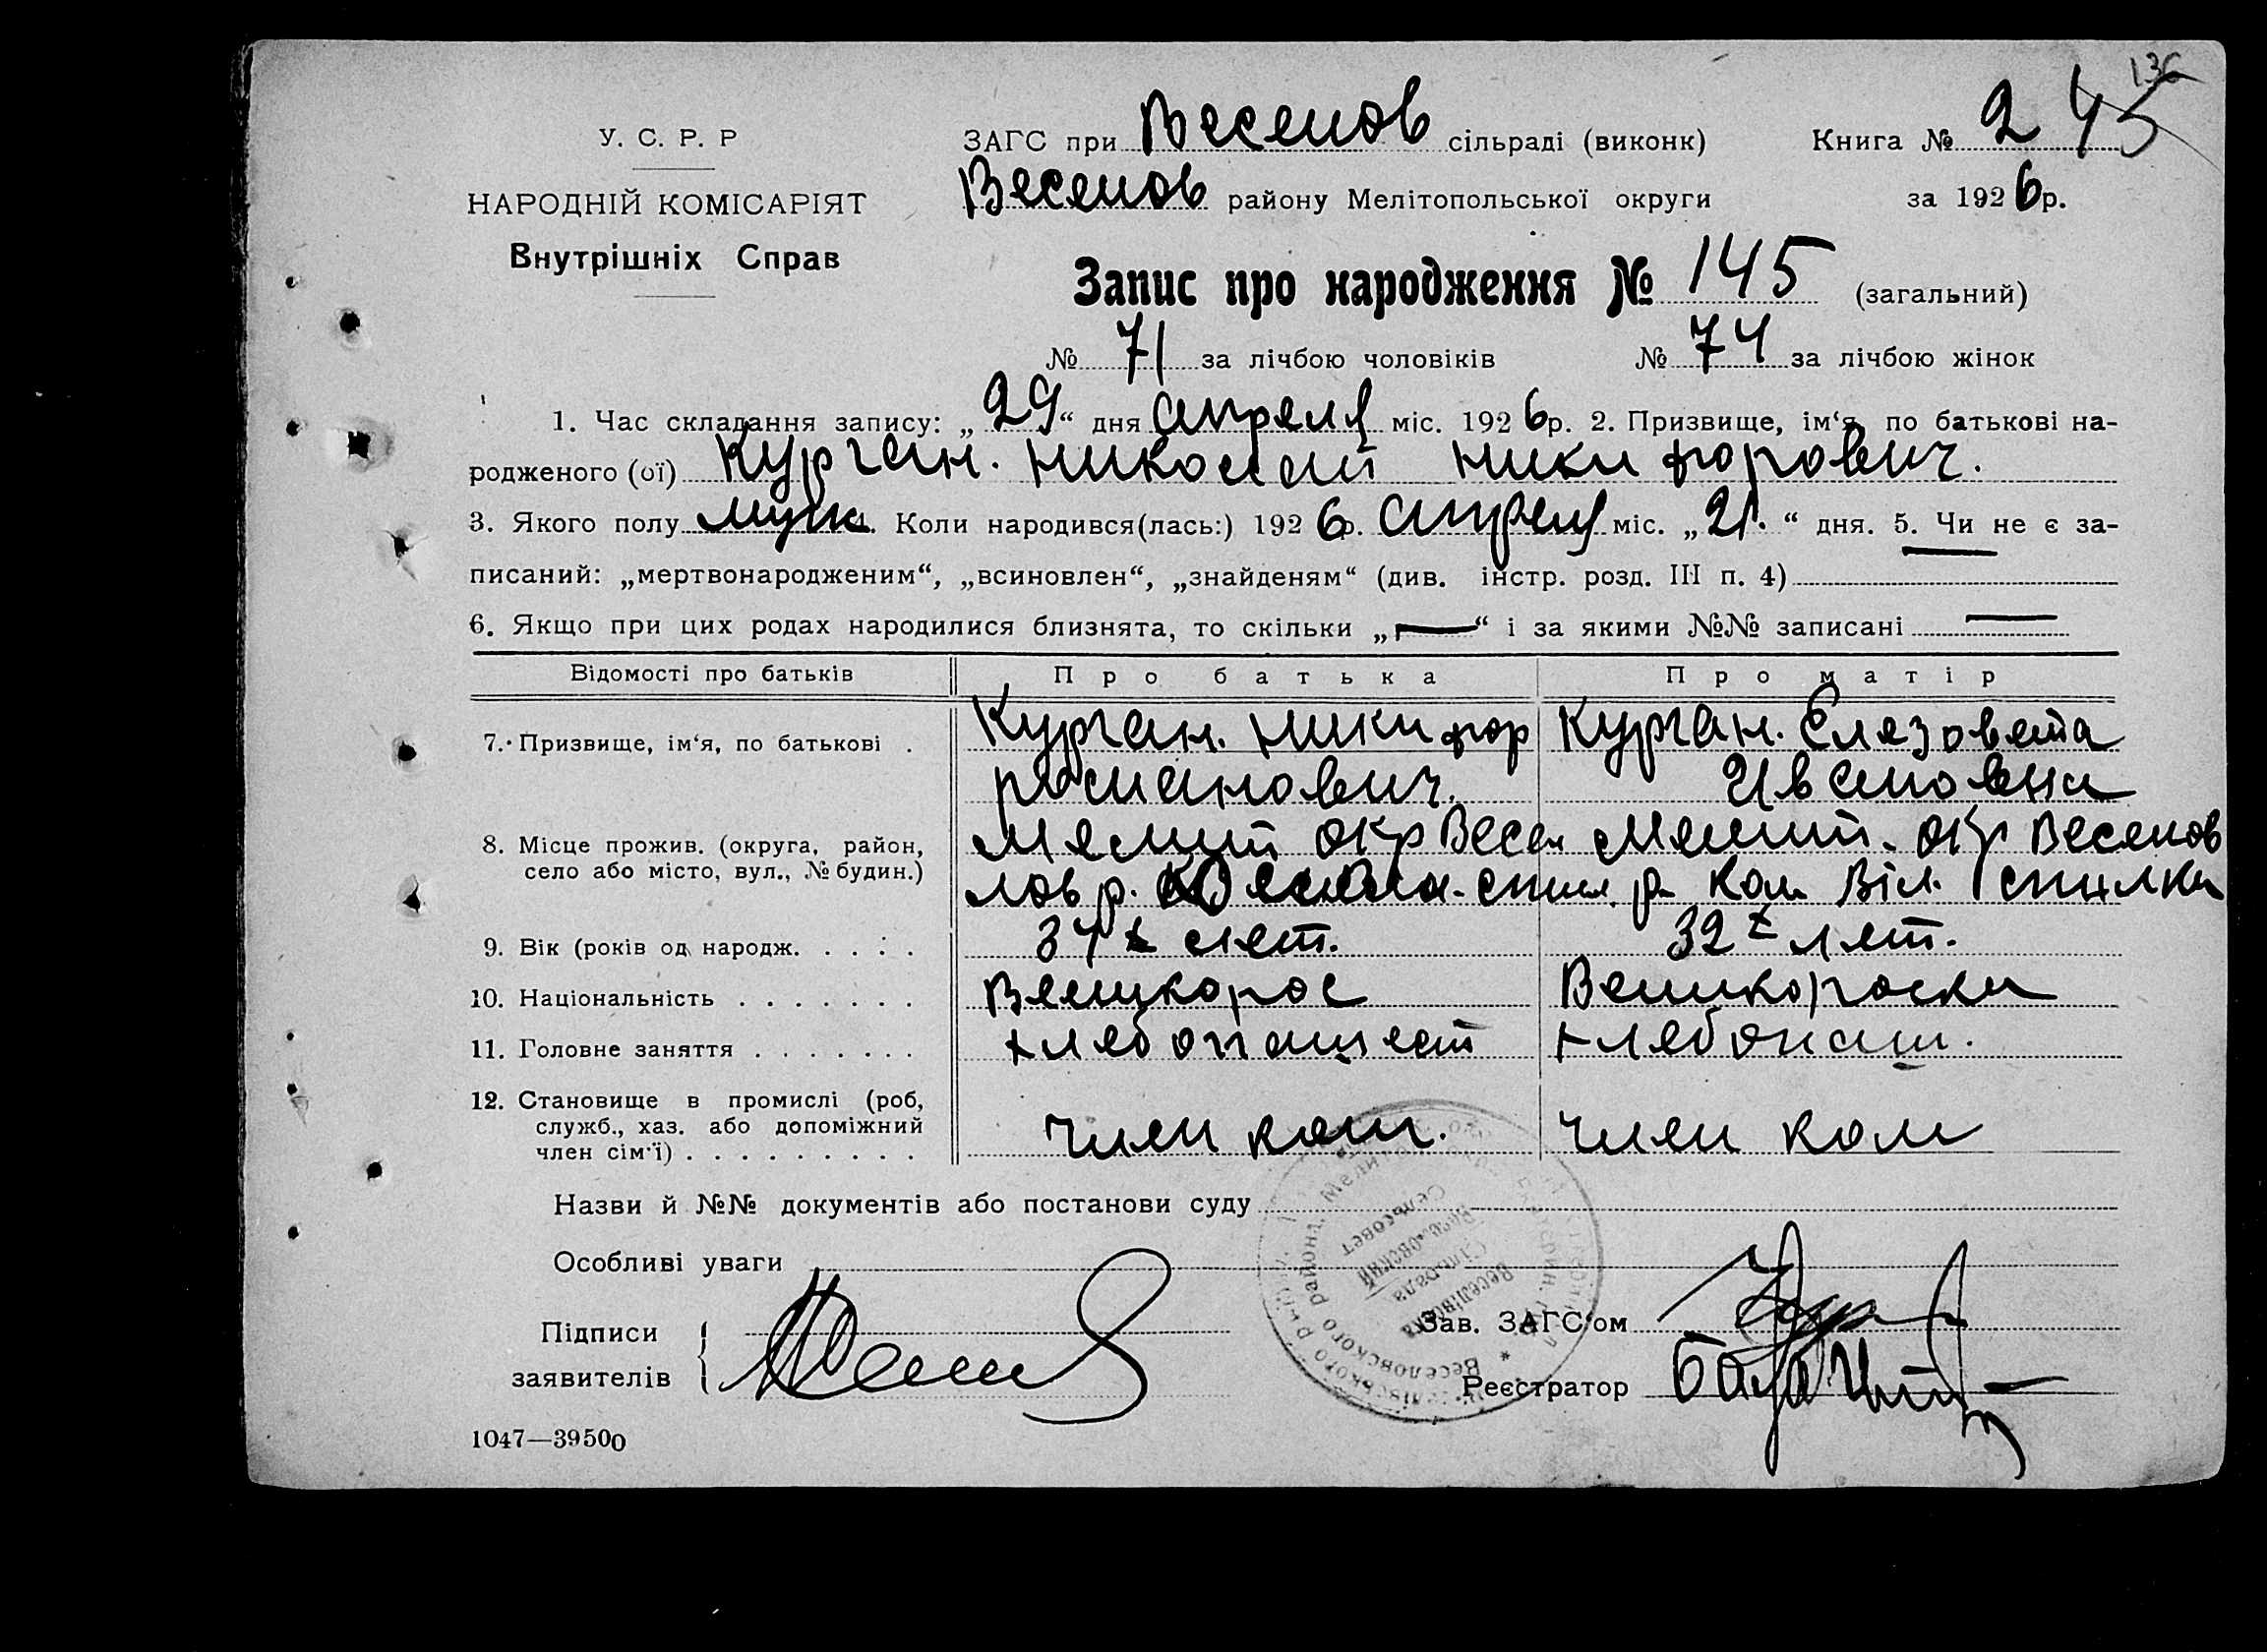 136
У. С. Р. Р
НАРОДНІЙ КОМІСАРІЯТ
Внутрішніх Справ
ЗАГС при Веселов сільраді (виконк) Книга № 2 45
Веселов району Мелітопольської округи за 1926р.
Запис про народження № 145 (загальний)
№ 71 за лічбою чоловіків № 74 за лічбою жінок
1. Час складання запису: „29“ дня апреля міс. 1926р. 2. Призвище, ім‘я, по батькові на-
родженого (ої) Курган. Николай Никифорович.
3. Якого полу муж 4. Коли народився(лась:) 1926р. апреля міс. „21.“ дня. 5. Чи не є за-
писаний: „мертвонародженим“, „всиновлен“, „знайденям“ (див. інстр. розд. III п. 4)
6. Якщо при цих родах народилися близнята, то скільки „—“ і за якими №№ записані —
Відомості про батьків Про батька Про матір
7. Призвище, ім‘я, по батькові . Курган. Никифор Курган. Елезовета
романович. Ивановна
8. Місце прожив. (округа, район, Мелит окр Весел Мелит. окр Веселов
село або місто, вул., № будин.) лов р. спил. р. Ком Віл. спилка
9. Вік (років од народж. . . . . 34 х лет. 32 х лет.
10. Національність . . . . . . . Великорос Великороска
11. Головне заняття . . . . . . . хлебопашест хлебопаш.
12. Становище в промислі (роб,
служб., хаз. або допоміжний член ком. член ком
член сім‘ї) . . . . . . . . .
Назви й №№ документів або постанови суду
Особливі уваги
Підписи
заявителів
Зав. ЗАГС‘ом
Реєстратор
Веселівська
Сільрада
Веселовский
Сельсовет
Веселовского района
1047—39500